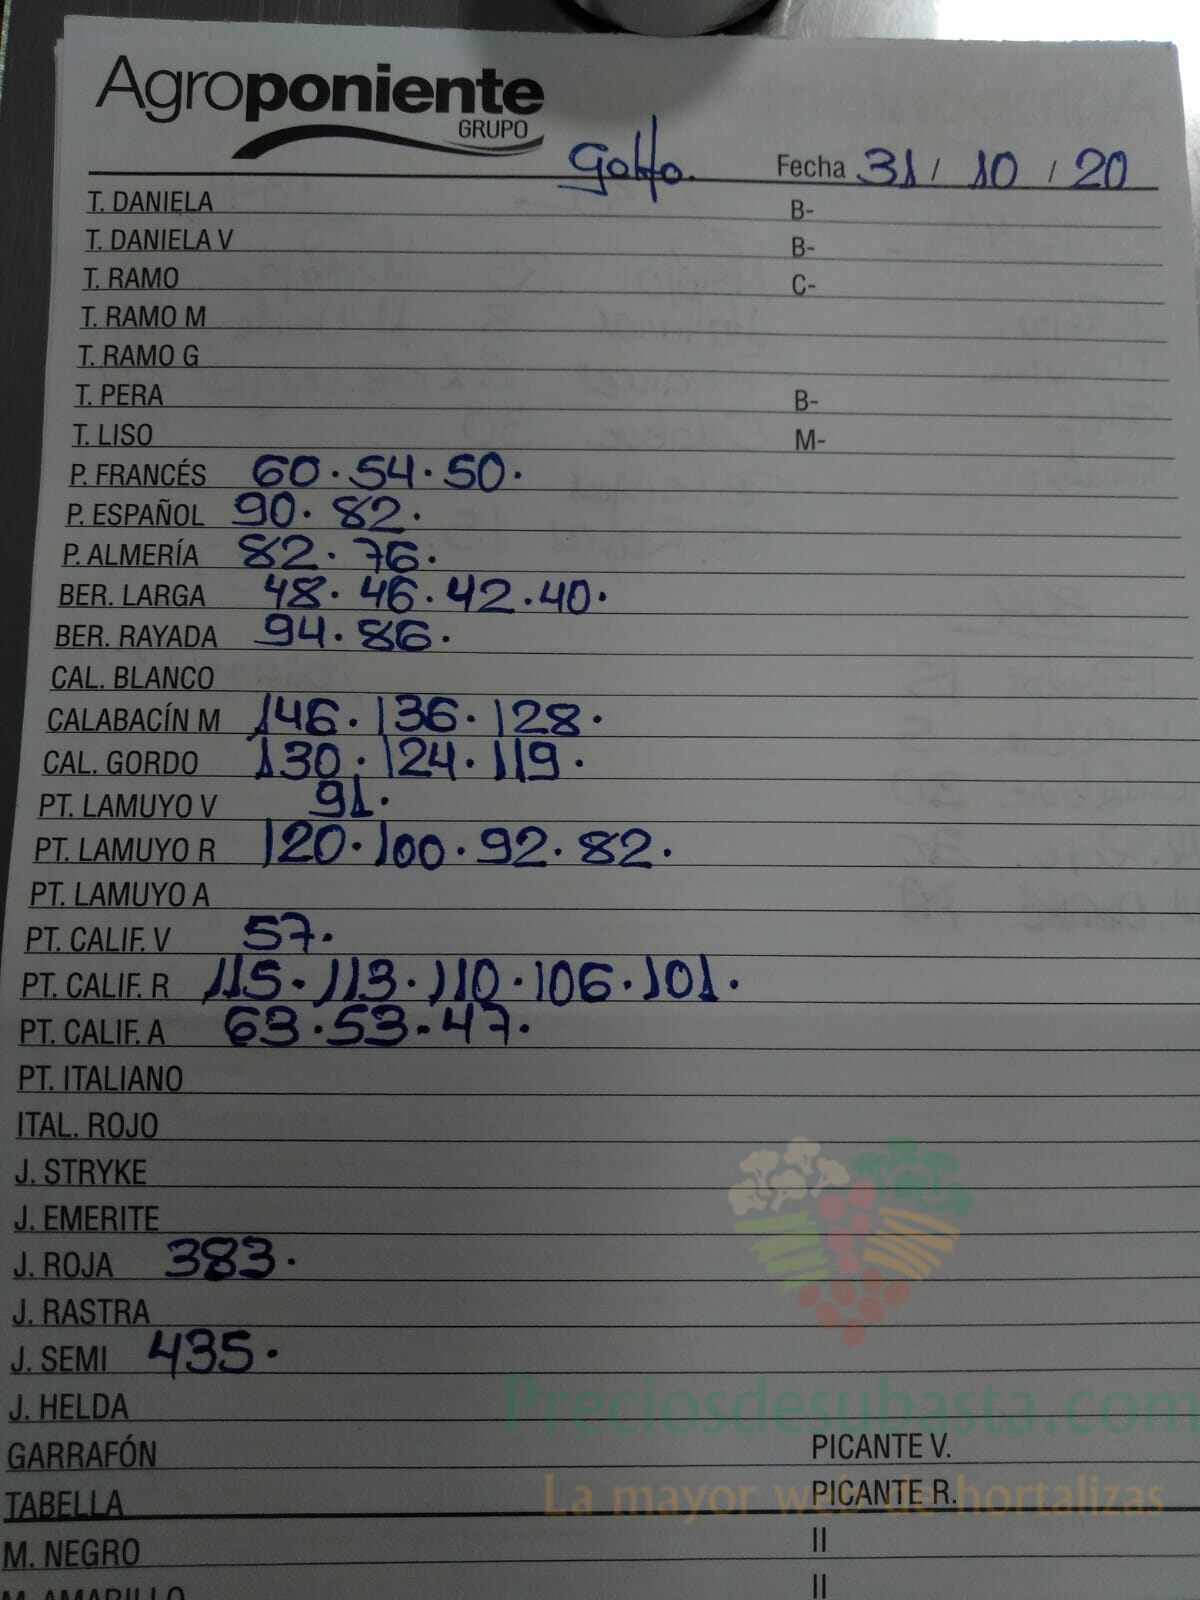 Agroponiente
GRUPO
Fecha 31 / 10 / 20
T. DANIELA B-
T. DANIELA V B-
T. RAMO C-
T. RAMO M
T. RAMO G
T. PERA B-
T. LISO M-
P. FRANCÉS 60. 54. 50.
P. ESPAÑOL 90. 82.
P. ALMERÍA 82. 76.
BER. LARGA 48. 46. 42. 40.
BER. RAYADA 94. 86.
CAL. BLANCO
CALABACÍN M 146. 136. 128.
CAL. GORDO 130. 124. 119.
PT. LAMUYO V 91.
PT. LAMUYO R 120. 100. 92. 82.
PT. LAMUYO A
PT. CALIF. V 57.
PT. CALIF. R 115. 113. 110. 106. 101.
PT. CALIF. A 63. 53. 47.
PT. ITALIANO
ITAL. ROJO
J. STRYKE
J. EMERITE
J. ROJA 383.
J. RASTRA
J. SEMI 435.
J. HELDA
Preciosdesubasta.com
GARRAFÓN PICANTE V.
La mayor web de hortalizas
TABELLA PICANTE R.
M. NEGRO II
M. AMARILLO II